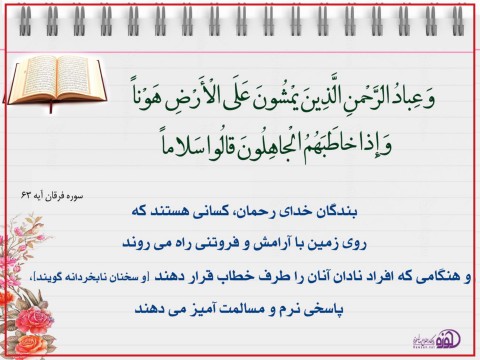 وَ عِبادُ الرَّحْمنِ الَّذِينَ يَمْشُونَ عَلَى الْأَرْضِ هَوْناً
وَ إِذا خاطَبَهُمُ الْجاهِلُونَ قالُوا سَلاماً
سوره فرقان آیه ۶۳
بندگان خدای رحمان، کسانی هستند که
روی زمین با آرامش و فروتنی راه می روند
و هنگامی که افراد نادان آنان را طرف خطاب قرار دهند [و سخنان نابخردانه گویند]،
پاسخی نرم و مسالمت آمیز می دهند